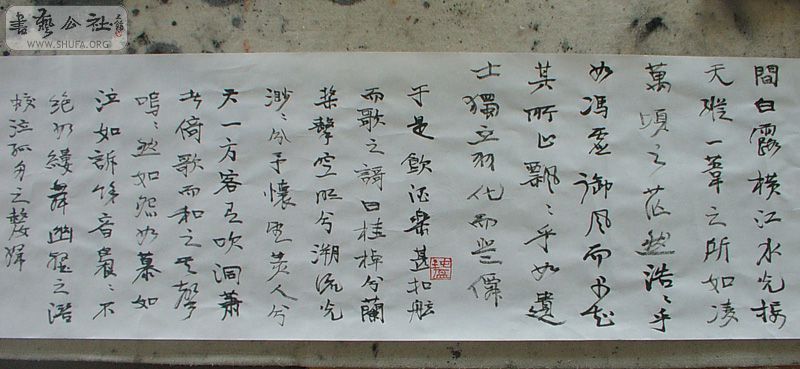 書藝公社
WWW.SHUFA.ORG
間白露橫江水光接
天縱一葦之所如凌
萬頃之茫然浩〻乎
如馮虛御風而不知
其所止飄〻乎如遺
士獨立羽化而登僊
于是飲酒樂甚扣舷
而歌之謌曰桂棹兮蘭
槳擊空明兮溯流光
渺〻兮予懷望美人兮
天一方客有吹洞蕭
者倚歌而和之其聲
嗚〻然如怨如慕如
泣如訴餘音裊〻不
絕如縷舞幽壑之潛
蛟泣孤舟之嫠